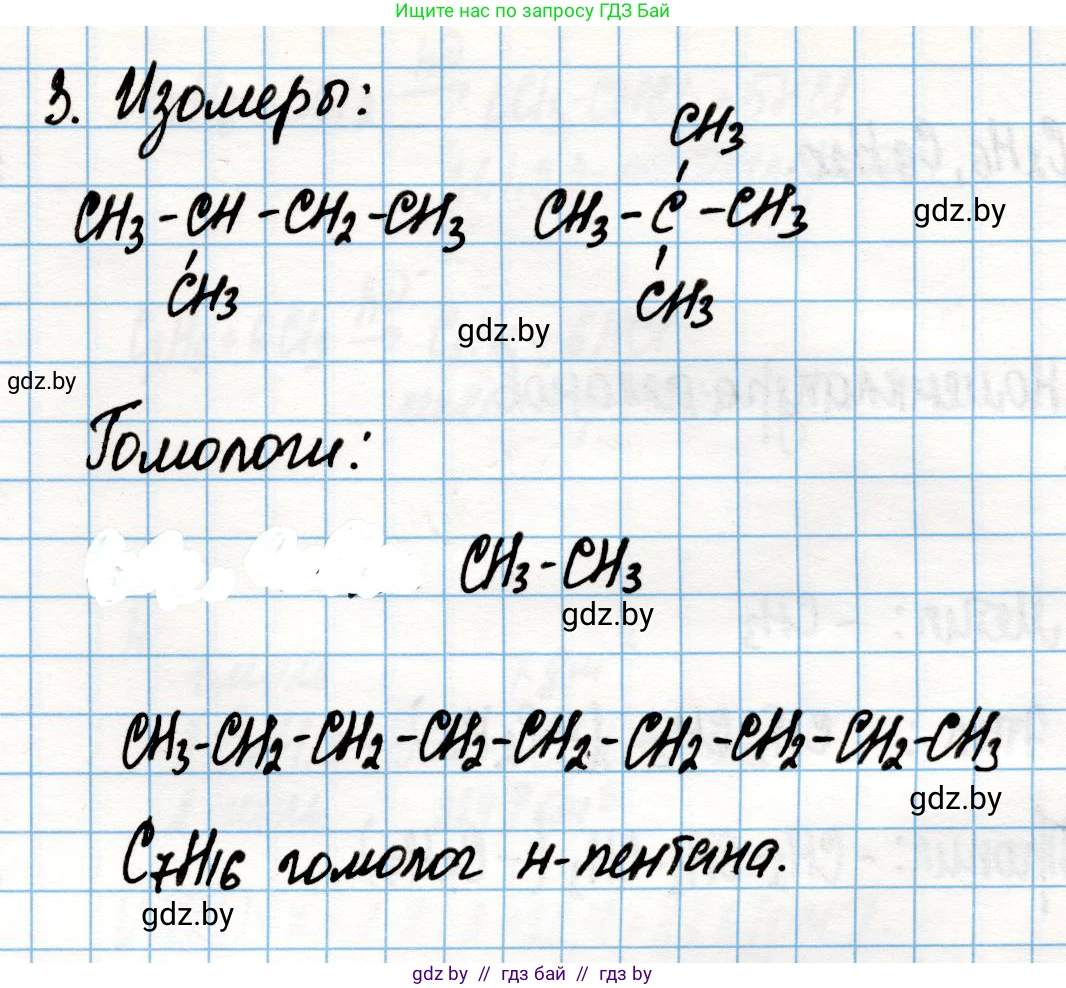 Ищите нас по запросу ГДЗ Бай
3. Изомеры:
CH3
CH3 - CH - CH2 - CH3 CH3 - C - CH3
gdz.by
CH3 CH3
gdz.by
gdz.by
Гомологи:
CH3 - CH3
gdz.by
CH3-CH2-CH2-CH2-CH2-CH2-CH2-CH2-CH3
gdz.by
C7H16 гомолог н-пентана.
gdz.by
gdz by // гдз бай // гдз by